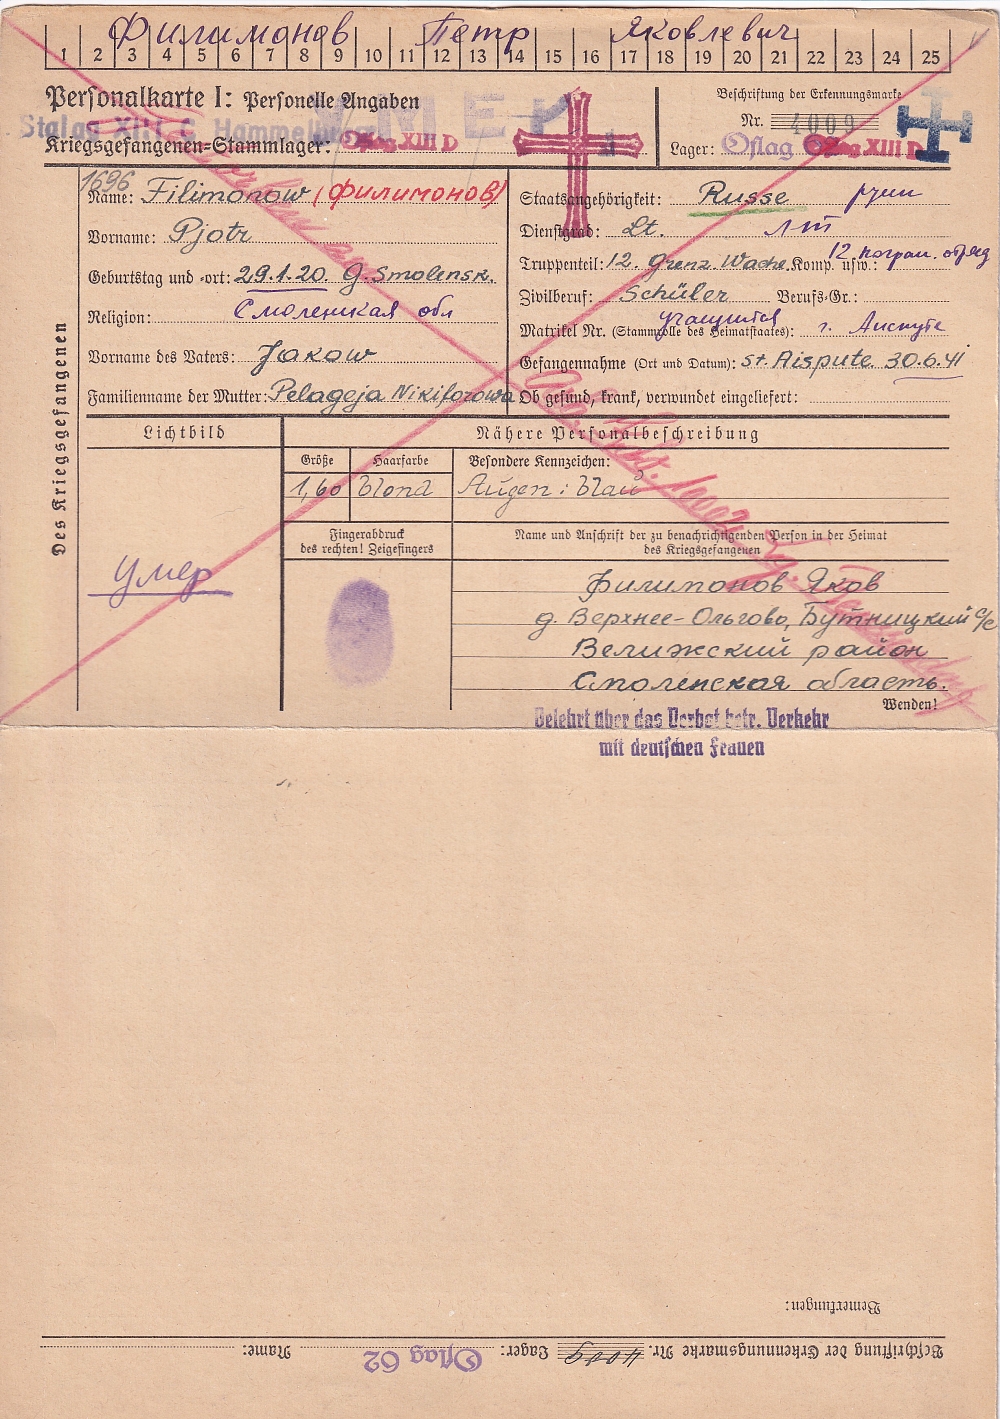 Филимонов Петр Яковлевич
1 2 3 4 5 6 7 8 9 10 11 12 13 14 15 16 17 18 19 20 21 22 23 24 25
Personalkarte I: Personelle Angaben
Beschriftung der Erkennungsmarke
УМЕР
Nr. 4009
Stalag XIII C Hammelburg
Kriegsgefangenen-Stammlager: Oflag XIII D
Lager: Oflag XIII D
1696
Des Kriegsgefangenen
Name: Filimonow (Филимонов)
Vorname: Pjotr
Geburtstag und -ort: 29.1.20. G. Smolensk.
Religion: Смоленская обл
Vorname des Vaters: Jakow
Familienname der Mutter: Pelageja Nikiforowa
Staatsangehörigkeit: Russe русс
Dienstgrad: Lt. лт
Truppenteil: 12. Grenz. Wache. Komp. usw.: 12 погран. отряд
Zivilberuf: Schüler Berufs-Gr.:
учащийся
Matrikel Nr. (Stammrolle des Heimatstaates): г. Аиспуте
Gefangennahme (Ort und Datum): St. Aispute 30.6.41
Ob gesund, krank, verwundet eingeliefert:
Lichtbild
Nähere Personalbeschreibung
Größe Haarfarbe Besondere Kennzeichen:
1,60 blond Augen: blau
Fingerabdruck
des rechten! Zeigefingers
Name und Anschrift der zu benachrichtigenden Person in der Heimat
des Kriegsgefangenen
умер
Филимонов Яков
д. Верхнее-Ольгово, Бутницкий с/с
Велижский район
Смоленская область.
Wenden!
Belehrt über das Verbot betr. Verkehr
mit deutschen Frauen
Bemerkungen:
Beschriftung der Erkennungsmarke Nr. 4009 Lager: Oflag 62 Name: